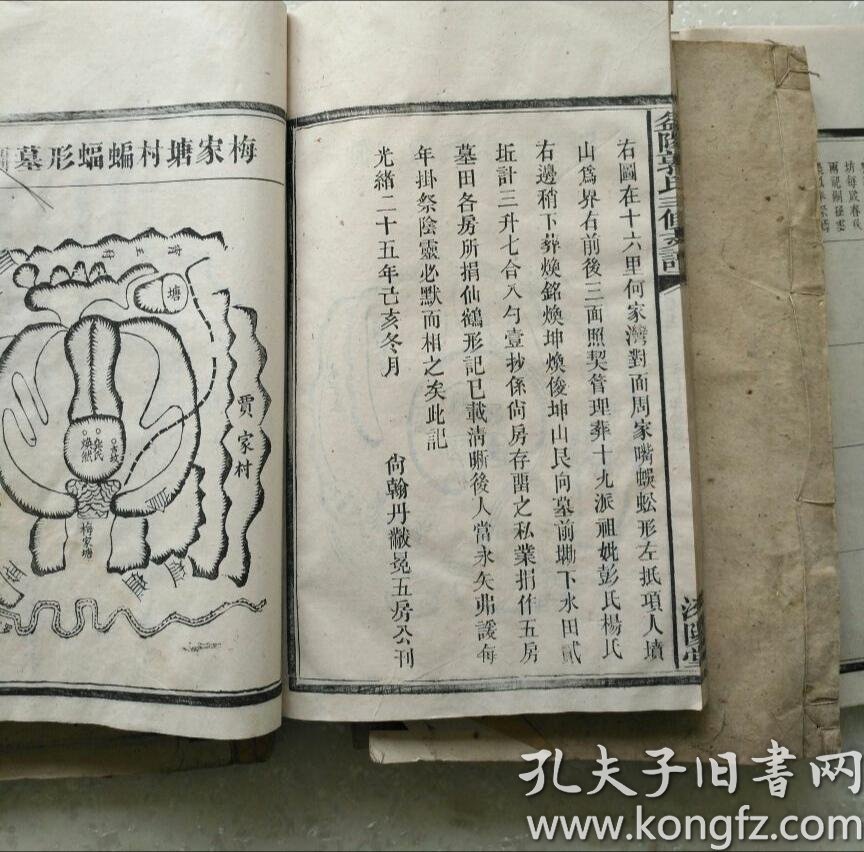 右圖在十六里何家灣對面周家嘴蜈蚣形左抵項人墳
山為界右前後三面照契管理葬十九派祖妣彭氏楊氏
右邊稍下葬煥銘煥坤煥俊坤山艮向墓前墈下水田貳
坵計三升七合八勺壹抄係尙房存畱之私業捐作五房
墓田各房所捐仙鶴形記已載淸晰後人當永矢弗諼每
年掛祭陰靈必默而相之矣此記
光緒二十五年己亥冬月
尙翰丹黻冕五房公刊
梅家塘村蝙蝠形墓圖
塘
賈家村
煥然
梅家塘
孔夫子旧书网
www.kongfz.com